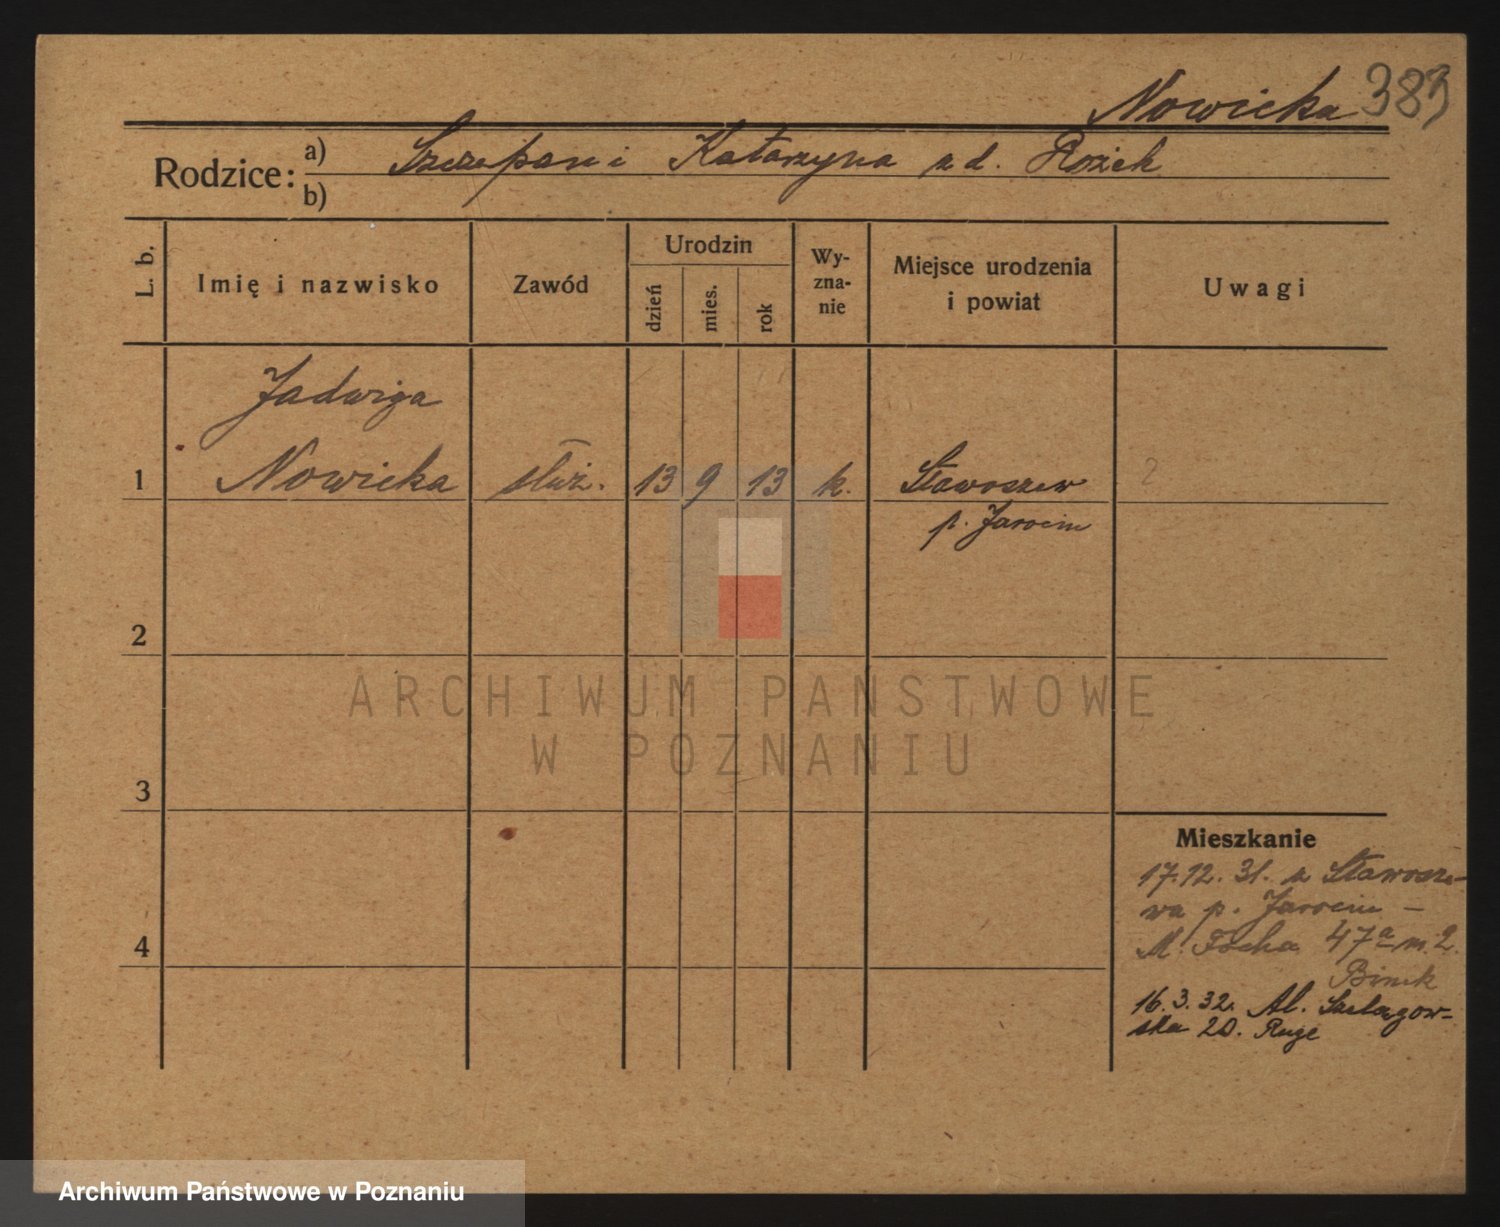 Nowicka 383
Rodzice: a) Szczepan i Katarzyna z d. Rożek
b)
L. b.
Imię i nazwisko
Zawód
Urodzin
dzień
mies.
rok
Wy-
zna-
nie
Miejsce urodzenia
i powiat
Uwagi
Jadwiga
1 Nowicka służ. 13 9 13 k. Stawoszew
p. Jarocin
2
3
4
Mieszkanie
17.12.31. z Stawosze-
wa p. Jarocin –
M. Focha 47a m. 2.
16.3.32. Al. Szelągow-
ska 20. Ruge
ARCHIWUM PANSTWOWE
W POZNANIU
Archiwum Państwowe w Poznaniu